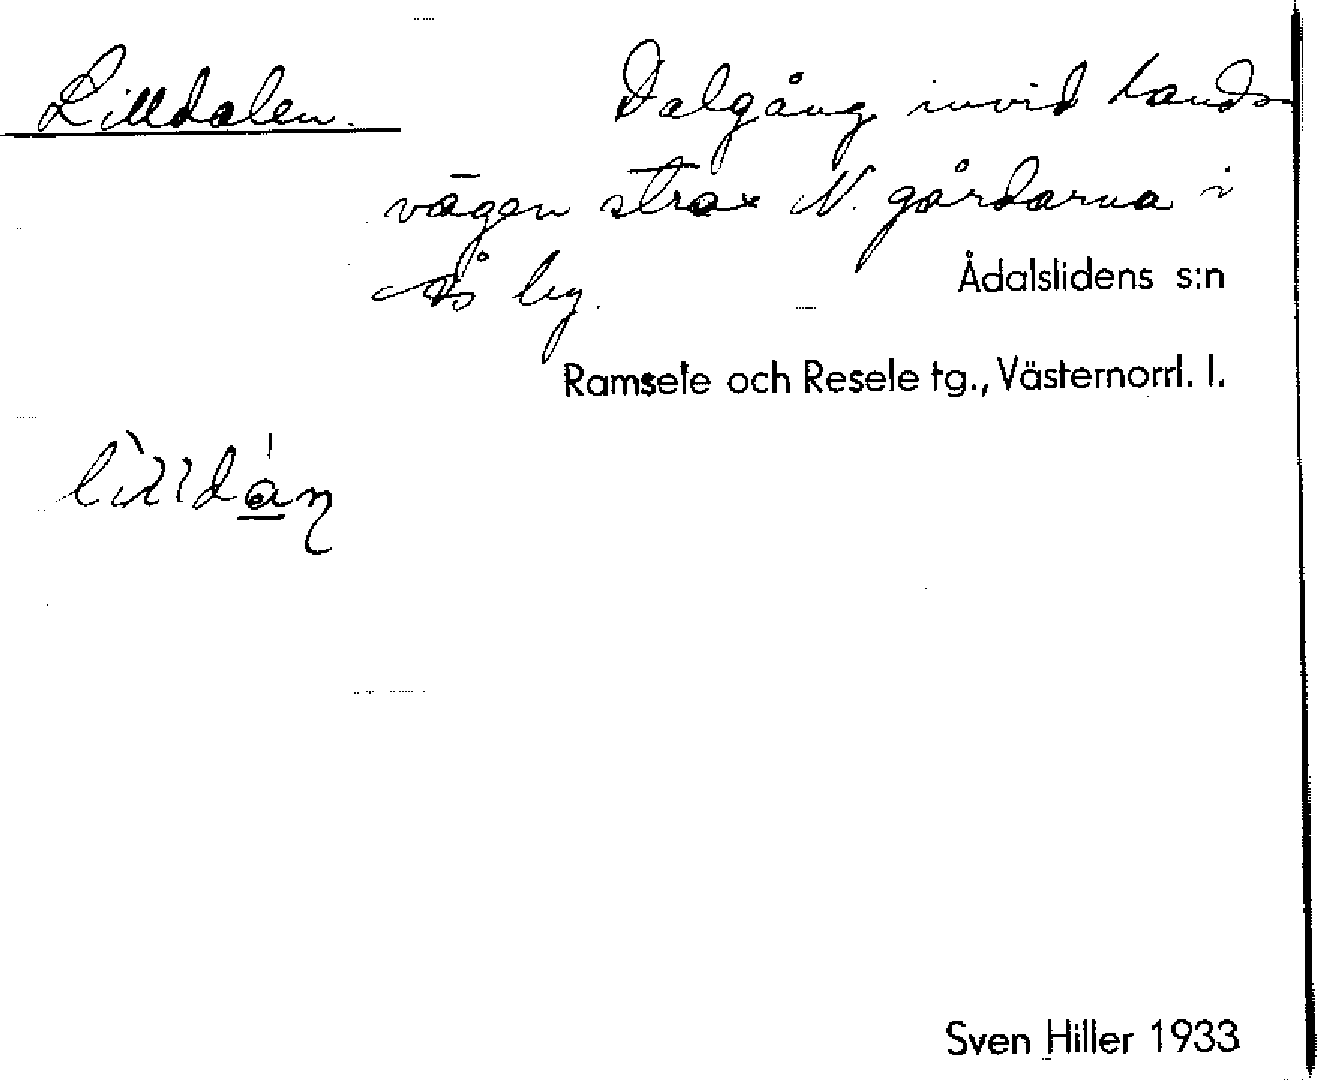 Lilldalen. Dalgång invid lands-
vägen strax N. gårdarna i
Ås by. Ådalslidens s:n
Ramsele och Resele tg., Västernorrl. l.
Sven Hiller 1933